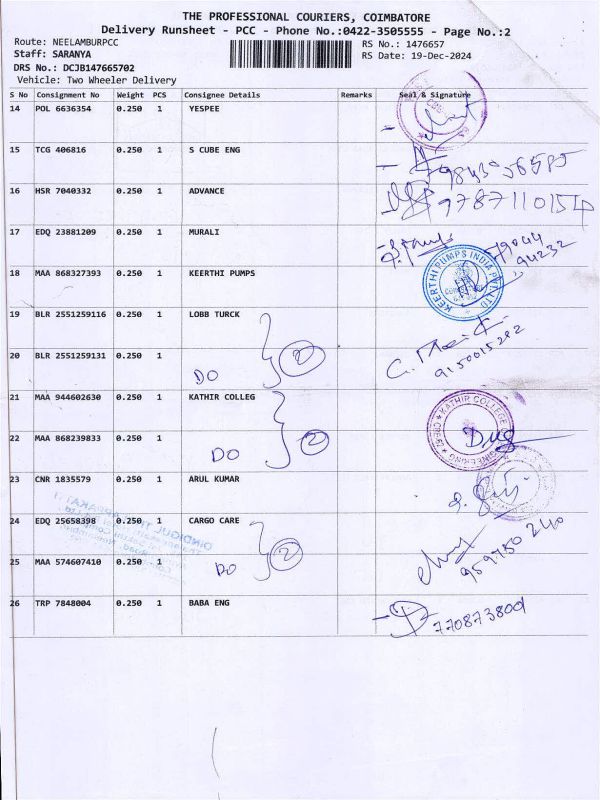 THE PROFESSIONAL COURIERS, COIMBATORE
Delivery Runsheet - PCC - Phone No.:0422-3505555 - Page No.:2
Route: NEELAMBURPCC
Staff: SARANYA
DRS No.: DCJB147665702
Vehicle: Two Wheeler Delivery
RS No.: 1476657
RS Date: 19-Dec-2024
S No Consignment No Weight PCS Consignee Details Remarks Seal & Signature
14 POL 6636354 0.250 1 YESPEE
15 TCG 406816 0.250 1 S CUBE ENG
16 HSR 7040332 0.250 1 ADVANCE
17 EDQ 23881209 0.250 1 MURALI
18 MAA 868327393 0.250 1 KEERTHI PUMPS
KEERTHI PUMPS INDIA PVT LTD
19 BLR 2551259116 0.250 1 LOBB TURCK
9150015282
20 BLR 2551259131 0.250 1
DO 2
21 MAA 944602630 0.250 1 KATHIR COLLEG
KATHIR COLLEGE
22 MAA 868239833 0.250 1
DO 2
23 CNR 1835579 0.250 1 ARUL KUMAR
24 EDQ 25658398 0.250 1 CARGO CARE
959750240
25 MAA 574607410 0.250 1
DO 2
26 TRP 7848004 0.250 1 BABA ENG
7708738001